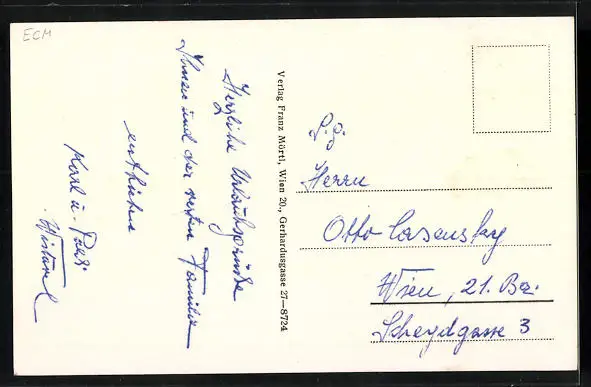 ECM
Herzliche Urlaubsgrüße
Ihnen und der werten Familie
entbieten
Karl u.
Verlag Franz Mörtl, Wien 20., Gerhardusgasse 27—8724
S. g.
Herrn
Otto Lasensky
Wien, 21. Bez.
Scheydgasse 3